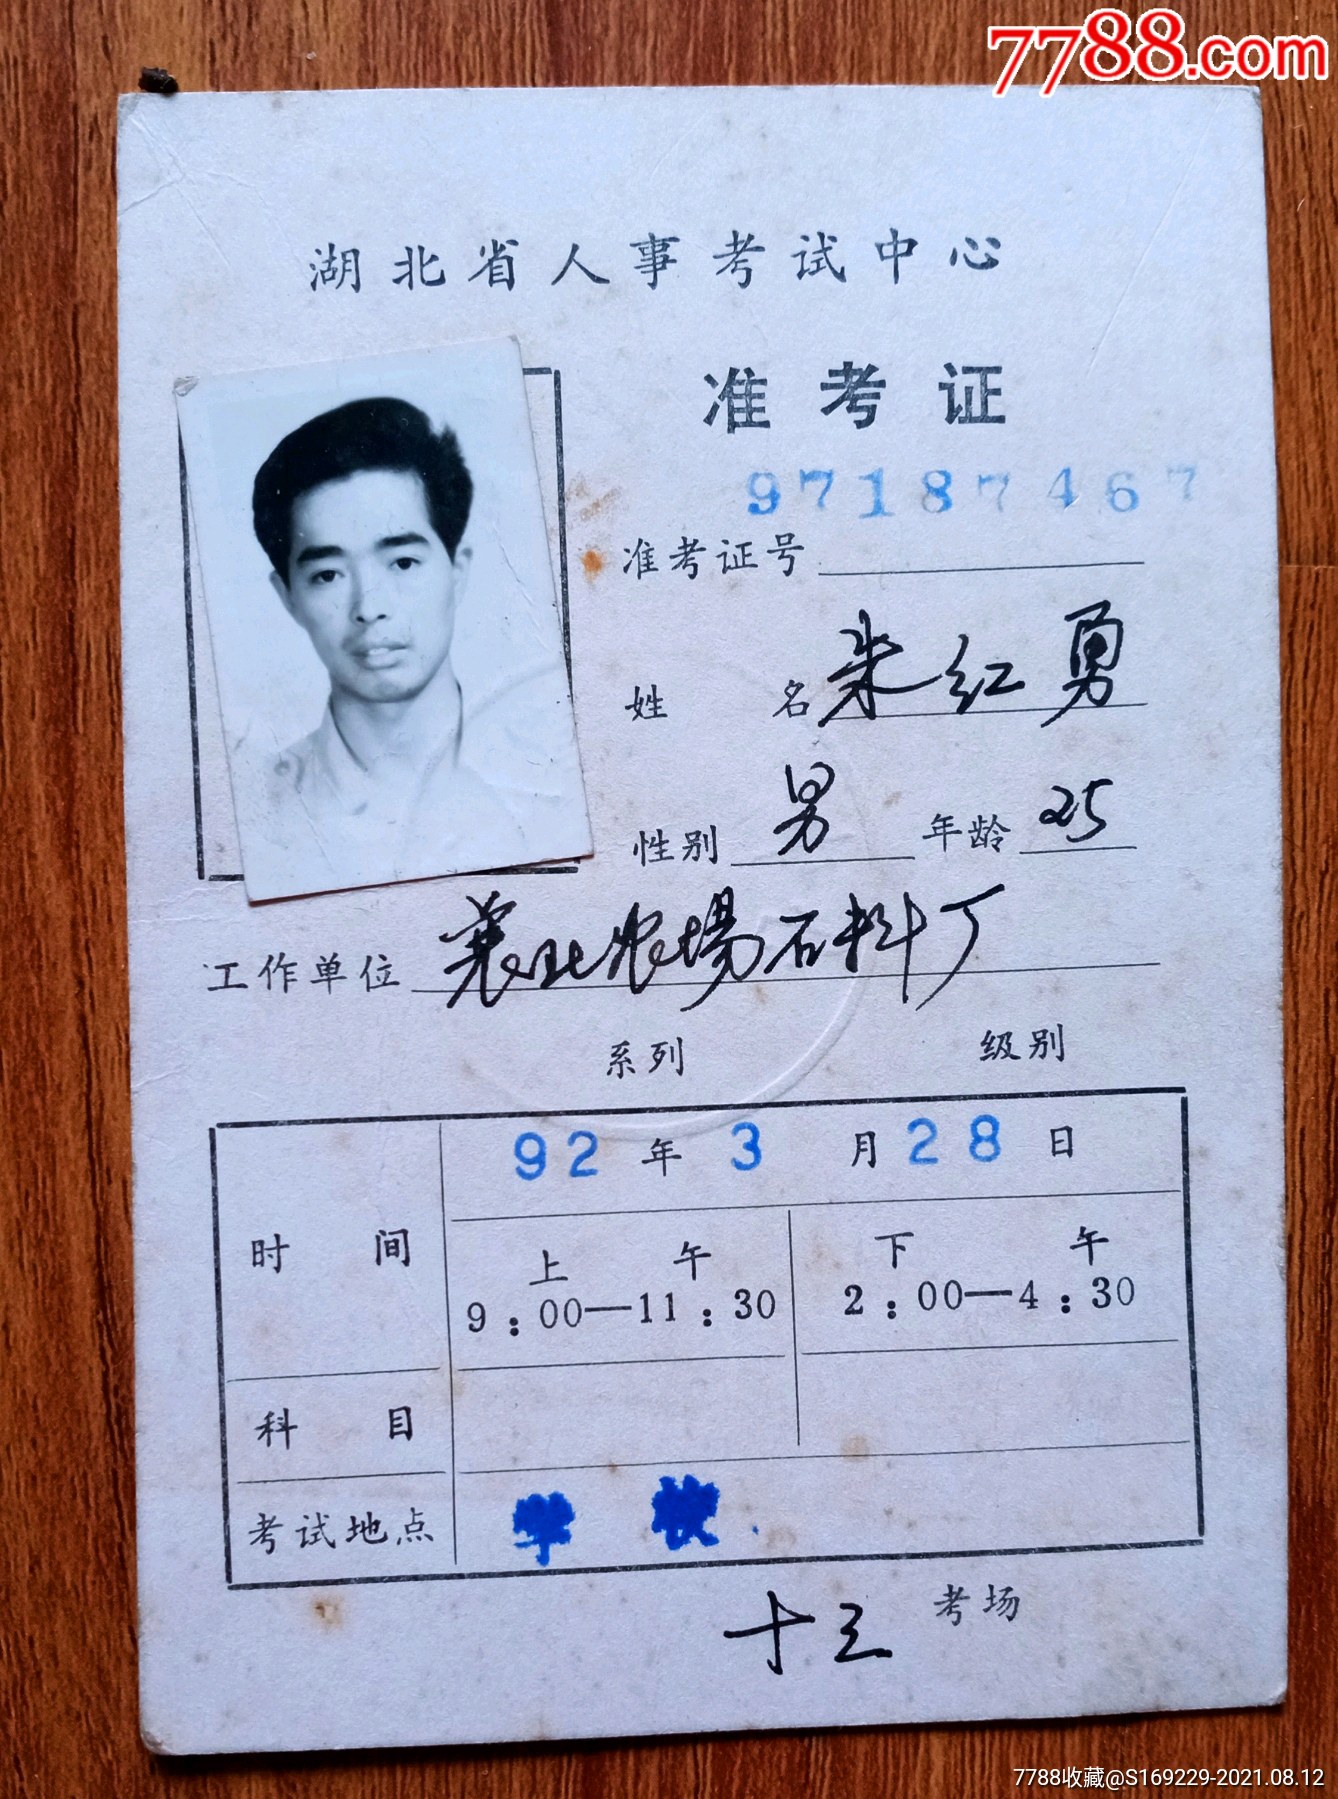 7788.com
湖北省人事考试中心
准考证
97187467
准考证号
姓名 朱红勇
性别 男 年龄 25
工作单位 襄北农場石料厂
系列 级别
92年3月28日
时间 上午 下午
9:00—11:30 2:00—4:30
科目
考试地点 学校
十三 考场
7788收藏@S169229-2021.08.12